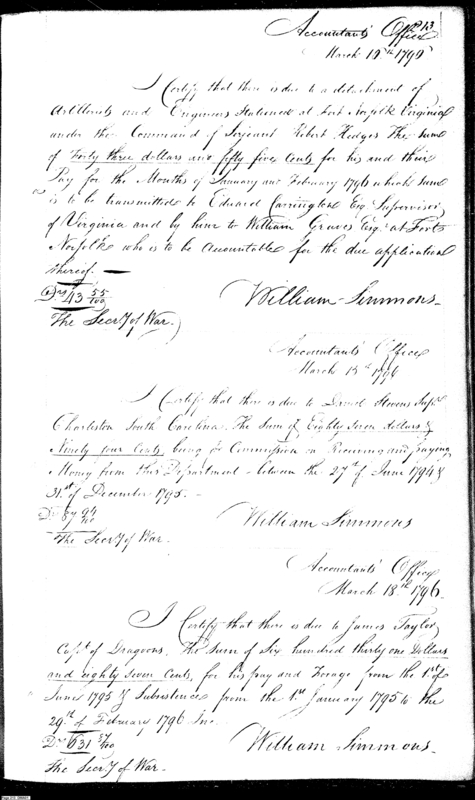 13
Accountants Office
March 12th 1796
I Certify that there is due to a detachment of
Artillerists and Engineers Stationed at Fort Norfolk Virginia
under the Command of Serjeant Robert Hodges The Sum
of Forty three dollars and fifty five Cents for his and their
Pay for the Months of January and February 1796 which Sum
is to be transmitted to Edward Carrington Esq Supervisor
of Virginia and by him to William Graves Esqr at Fort
Norfolk who is to be Accountable for the due application
thereof.
43 55/100
William Simmons
The Secry of War.
Accountants Office
March 15th 1796
I Certify that there is due to Daniel Stevens Supr
Charleston South Carolina The Sum of Eighty Seven dollars &
Ninety four Cents being his Commission on Receiving and paying
Money from this Department between the 27th of June 1794 &
31st of December 1795.
Ds 87 94/100
William Simmons
The Secry of War.
Accountants Office
March 18th 1796
I Certify that there is due to James Taylor
Capt of Dragoons. The Sum of Six hundred thirty one Dollars
and eighty Seven Cents, for his pay and Forage from the 1st of
June 1795 & Subsistence from the 1st January 1795 to the
29th of February 1796 Inc.
Ds 631 87/100
William Simmons.
The Secry of War.